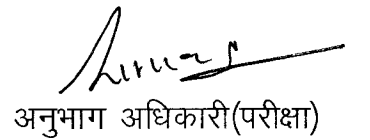 अनुभाग अधिकारी(परीक्षा)